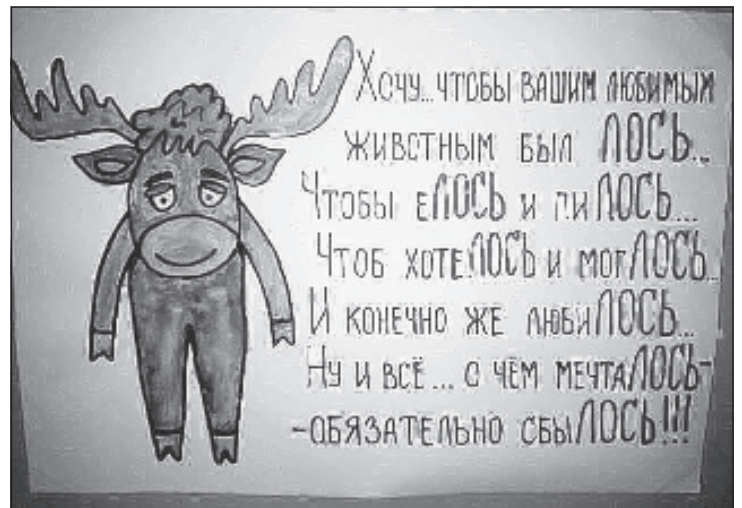 Хочу... чтобы вашим любимым
живстным был ЛОСЬ...
Чтобы еЛОСЬ и пиЛОСЬ...
Чтоб хотеЛОСЬ и могЛОСЬ...
И конечно же любиЛОСЬ...
Ну и всё... о чём мечтаЛОСЬ-
-обязательно сбыЛОСЬ!!!